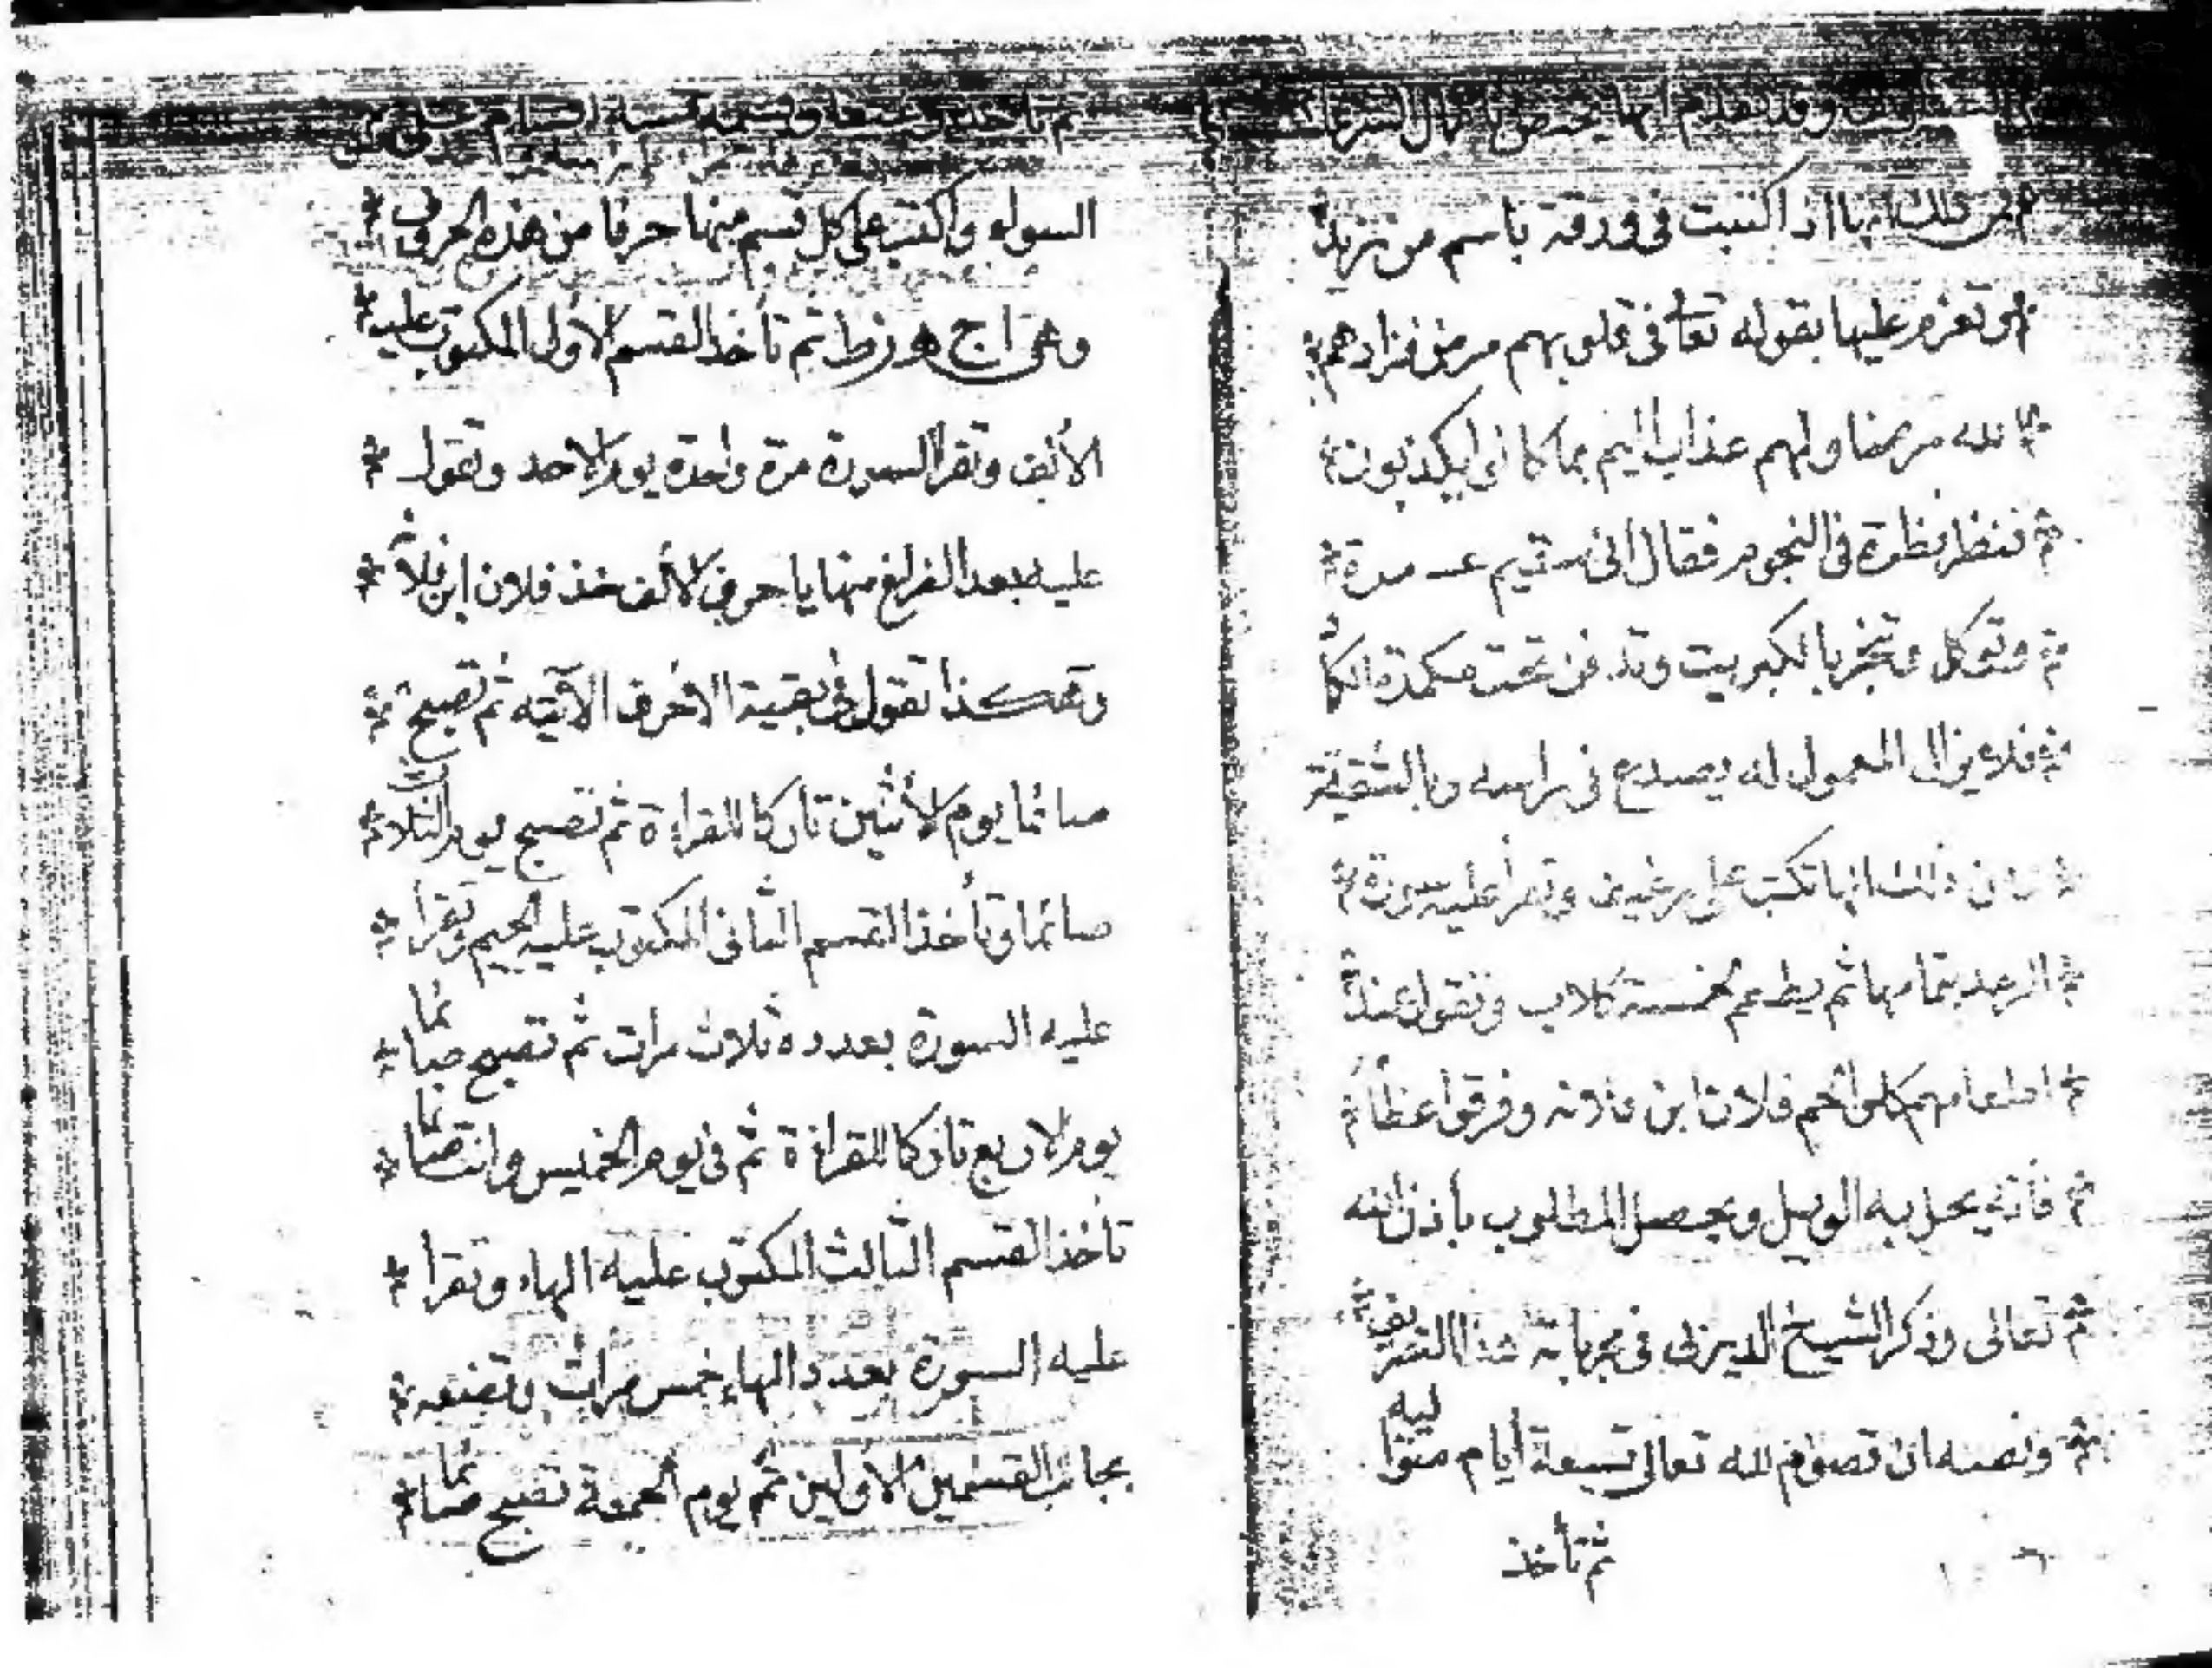 وقد تقدم انها يختص باعمال الشر
من ذلك انها اذا كتبت فى ورقة باسم من تريد
وتعزم عليها بقوله تعالى فى قلوبهم مرض فزادهم
الله مرضا ولهم عذاب اليم بما كانوا يكذبون
فنظر نظرة فى النجوم فقال انى سقيم مرة
وتوكل وتبخر بالكبريت وتدفن تحت
فلا يزال المعمول له يصدع فى راسه وبالشقيقة
ومن ذلك انها تكتب على رغيف وتقرأ عليه سورة
الرعد بتمامها ثم يطعم لخمسة كلاب وتقول عند
اطعامهم كلوا لحم فلان ابن فلانه وفرقوا عظا
فأنه يحل به الويل ويحصل المطلوب بأذن الله
تعالى وذكر الشيخ الديربى فى مجرباته هذا التصريف
ونصه ان تصوم لله تعالى تسعة أيام متواليه
ثم تأخذ
ثم تأخذ رغيفا وتقسمه خمسة اقسام على
السواء واكتب على كل قسم منها حرفا من هذه الحروف
وهى ا ج ه ز ط ثم تأخذ القسم الأول المكتوب عليه
الألف وتقرأ السورة مرة واحدة يوم الاحد وتقول
عليه بعد الفراغ منها يا حرف الألف خذ فلان ابن فلانه
وهكذا تقول فى بقية الاحرف الآتيه ثم تصبح
صائما يوم الأثنين تاركا للقراءة ثم تصبح يوم الثلاث
صائما وتأخذ القسم الثانى المكتوب عليه الجيم وتقرأ
عليه السورة بعدده ثلاث مرات ثم تصبح صائما
يوم الاربع تاركا للقراءة ثم فى يوم الخميس وانت صائما
تأخذ القسم الثالث المكتوب عليه الهاء وتقرأ
عليه السورة بعدد الهاء خمس مرات وتضعه
بجانب القسمين الأولين ثم يوم الجمعة تصبح صائما